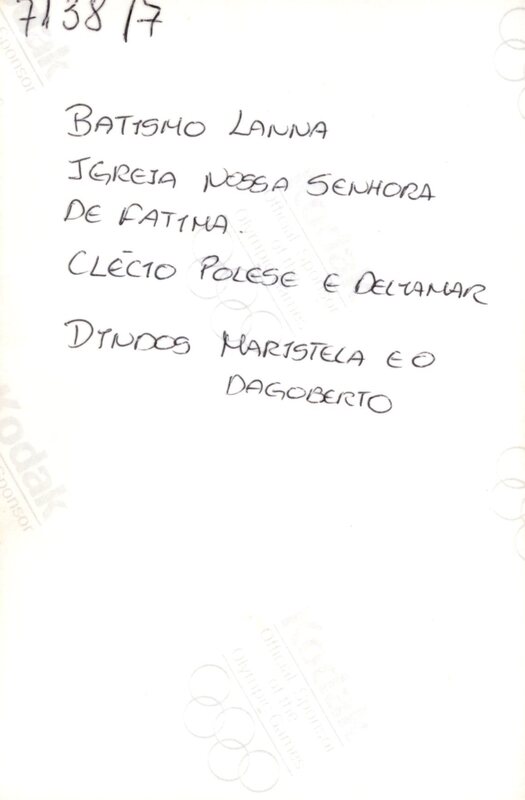 7138/7
BATISMO LANNA
IGREJA NOSSA SENHORA
DE FATIMA.
CLÉCIO POLESE E DELIAMAR
DINDOS MARISTELA E O
DAGOBERTO
Kodak
Official Sponsor
of the
Olympic Games
Kodak
Sponsor
Kodak
Official Sponsor
of the
Olympic Games